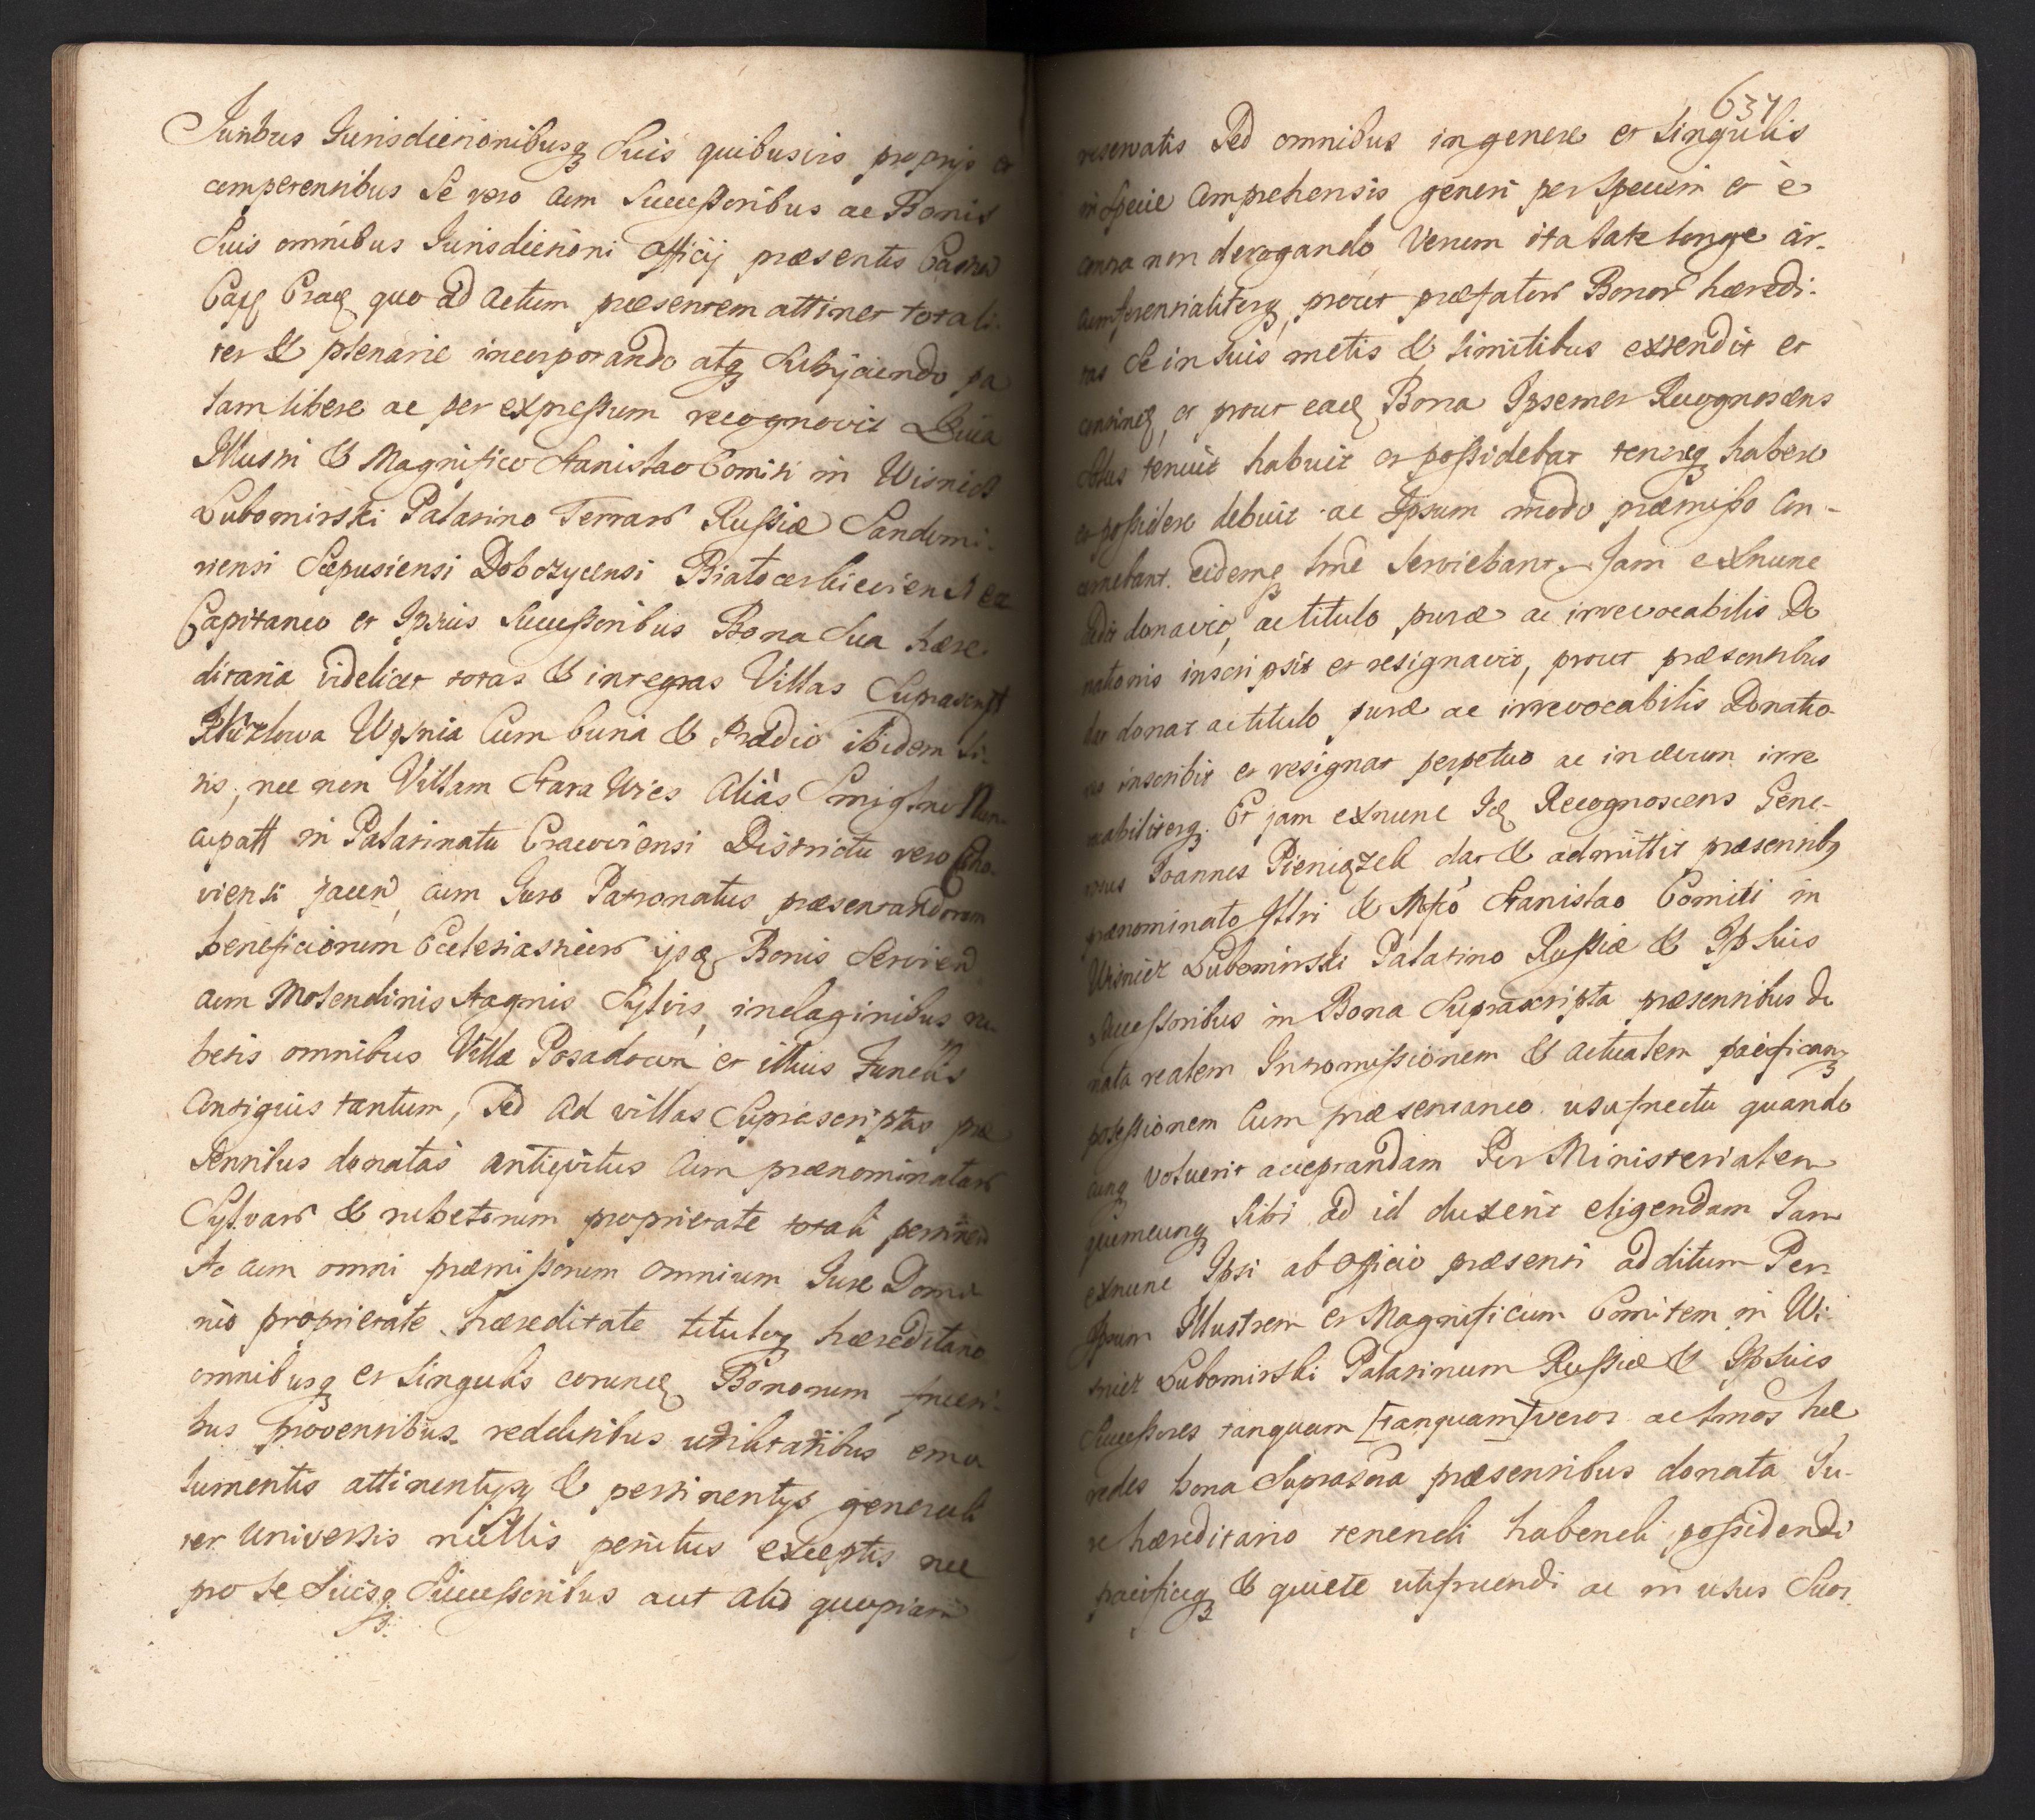 Juribus Jurisdictionibusq Suis quibusvis proprijs et
competentibus Se vero cum Successoribus ac Bonis
Suis omnibus Jurisdictioni Officij præsentis Castri
Capl Cracq quo ad actum præsentem attinet totali-
ter & plenarie incorporando atq Subijciendo pa
lam libere ac per expressum recognovit Quia
Illustri & Magnifico Stanislao Comiti in Wisnicz
Lubomirski Palatino Terrarū Russiæ Sandomi-
riensi Scepusiensi Dobczycensi Białocerkieviensi ea
Capitaneo et Ipsius Successoribus Bona Sua hære
ditaria videlicet totas & integras Villas Suprascript
Wyżnia Cum curia & Prædio ibidem Si-
tis, nec non Villam Stara Wies Alias Smigtne Nun-
cupatt in Palatinatu Cracoviensi Districtu vero Cħo-
viensi jacen, cum Jure Patronatus præsentandorum
beneficiorum Ecclesiasticorū ijsq Bonis Servien
cum Molendinis Stagnis Sylvis, indaginibus ru-
betis omnibus Villæ Posadowa et illius Fundis
Contiguis tantum, Sed ad villas Suprascriptas præ
sentibus donatas antiquitus cum prænominatarū
Sylvarū & rubetorum proprietate totali pertinen
Ac cum omni præmissorum omnium Jure Domi
nio proprietate hæreditate tituloq hæreditario
omnibusq et Singulis eorundq Bonorum fructi-
bus proventibus redditibus utilitatibus emo
lumentis attinentijsq & pertinentijs generali
ter universis nullis penitus exceptis nec
pro se Suisq Successoribus aut alio quopiam
637
reservatis Sed omnibus in genere et Singulis
in Specie Comprehensis generi per Speciem et è
contra non derogando Verum ita late longe cir-
cumferentialiterq, prout præfatorū Bonorū hæredi-
tas Se in Suis metis & limitibus extendit et
continq, et prout eadq Bona Ipsemet Recognoscens
Solus tenuit habuit et possidebat tenereq habere
et possidere debuit ac Ipsum modo præmisso Con-
cernebant eidemq tme Serviebant. Jam exnunc
dedit donavit, ac titulo puræ ac irrevocabilis Do
nationis inscripsit et resignavit, prout præsentibus
dat donat ac titulo puræ ac irrevocabilis Donatio
nis inscribit et resignat perpetuo ac in ævum irre
vocabiliterq. Et jam exnunc Idq Recognoscens Gene-
rosus Joannes Pieniążek dat & admittit præsentibq
prænominato Illri & Mfco Stanislao Comiti in
Wisnicz Lubomirski Palatino Russiæ & Ipsius
Successoribus in Bona Suprascripta præsentibus do
nata realem Intromissionem & actualem pacificamq
possessionem Cum præsentaneo usufructu quando
cunq voluerit acceptandam Per Ministerialem
quemcunq Sibi ad id duxerit eligendam Jam
exnunc Ipsi ab officio præsenti additum Per
Ipsum Illustrem et Magnificum Comitem in Wi-
snicz Lubomirski Palatinum Russiæ & Ipsius
Successores tanquam [tanquam] veros ac tmos hæ
redes bona Suprascra præsentibus donata Ju-
re hæreditario tenendi habendi possidendi
pacificeq & quiete utifruendi ac in usus Suos